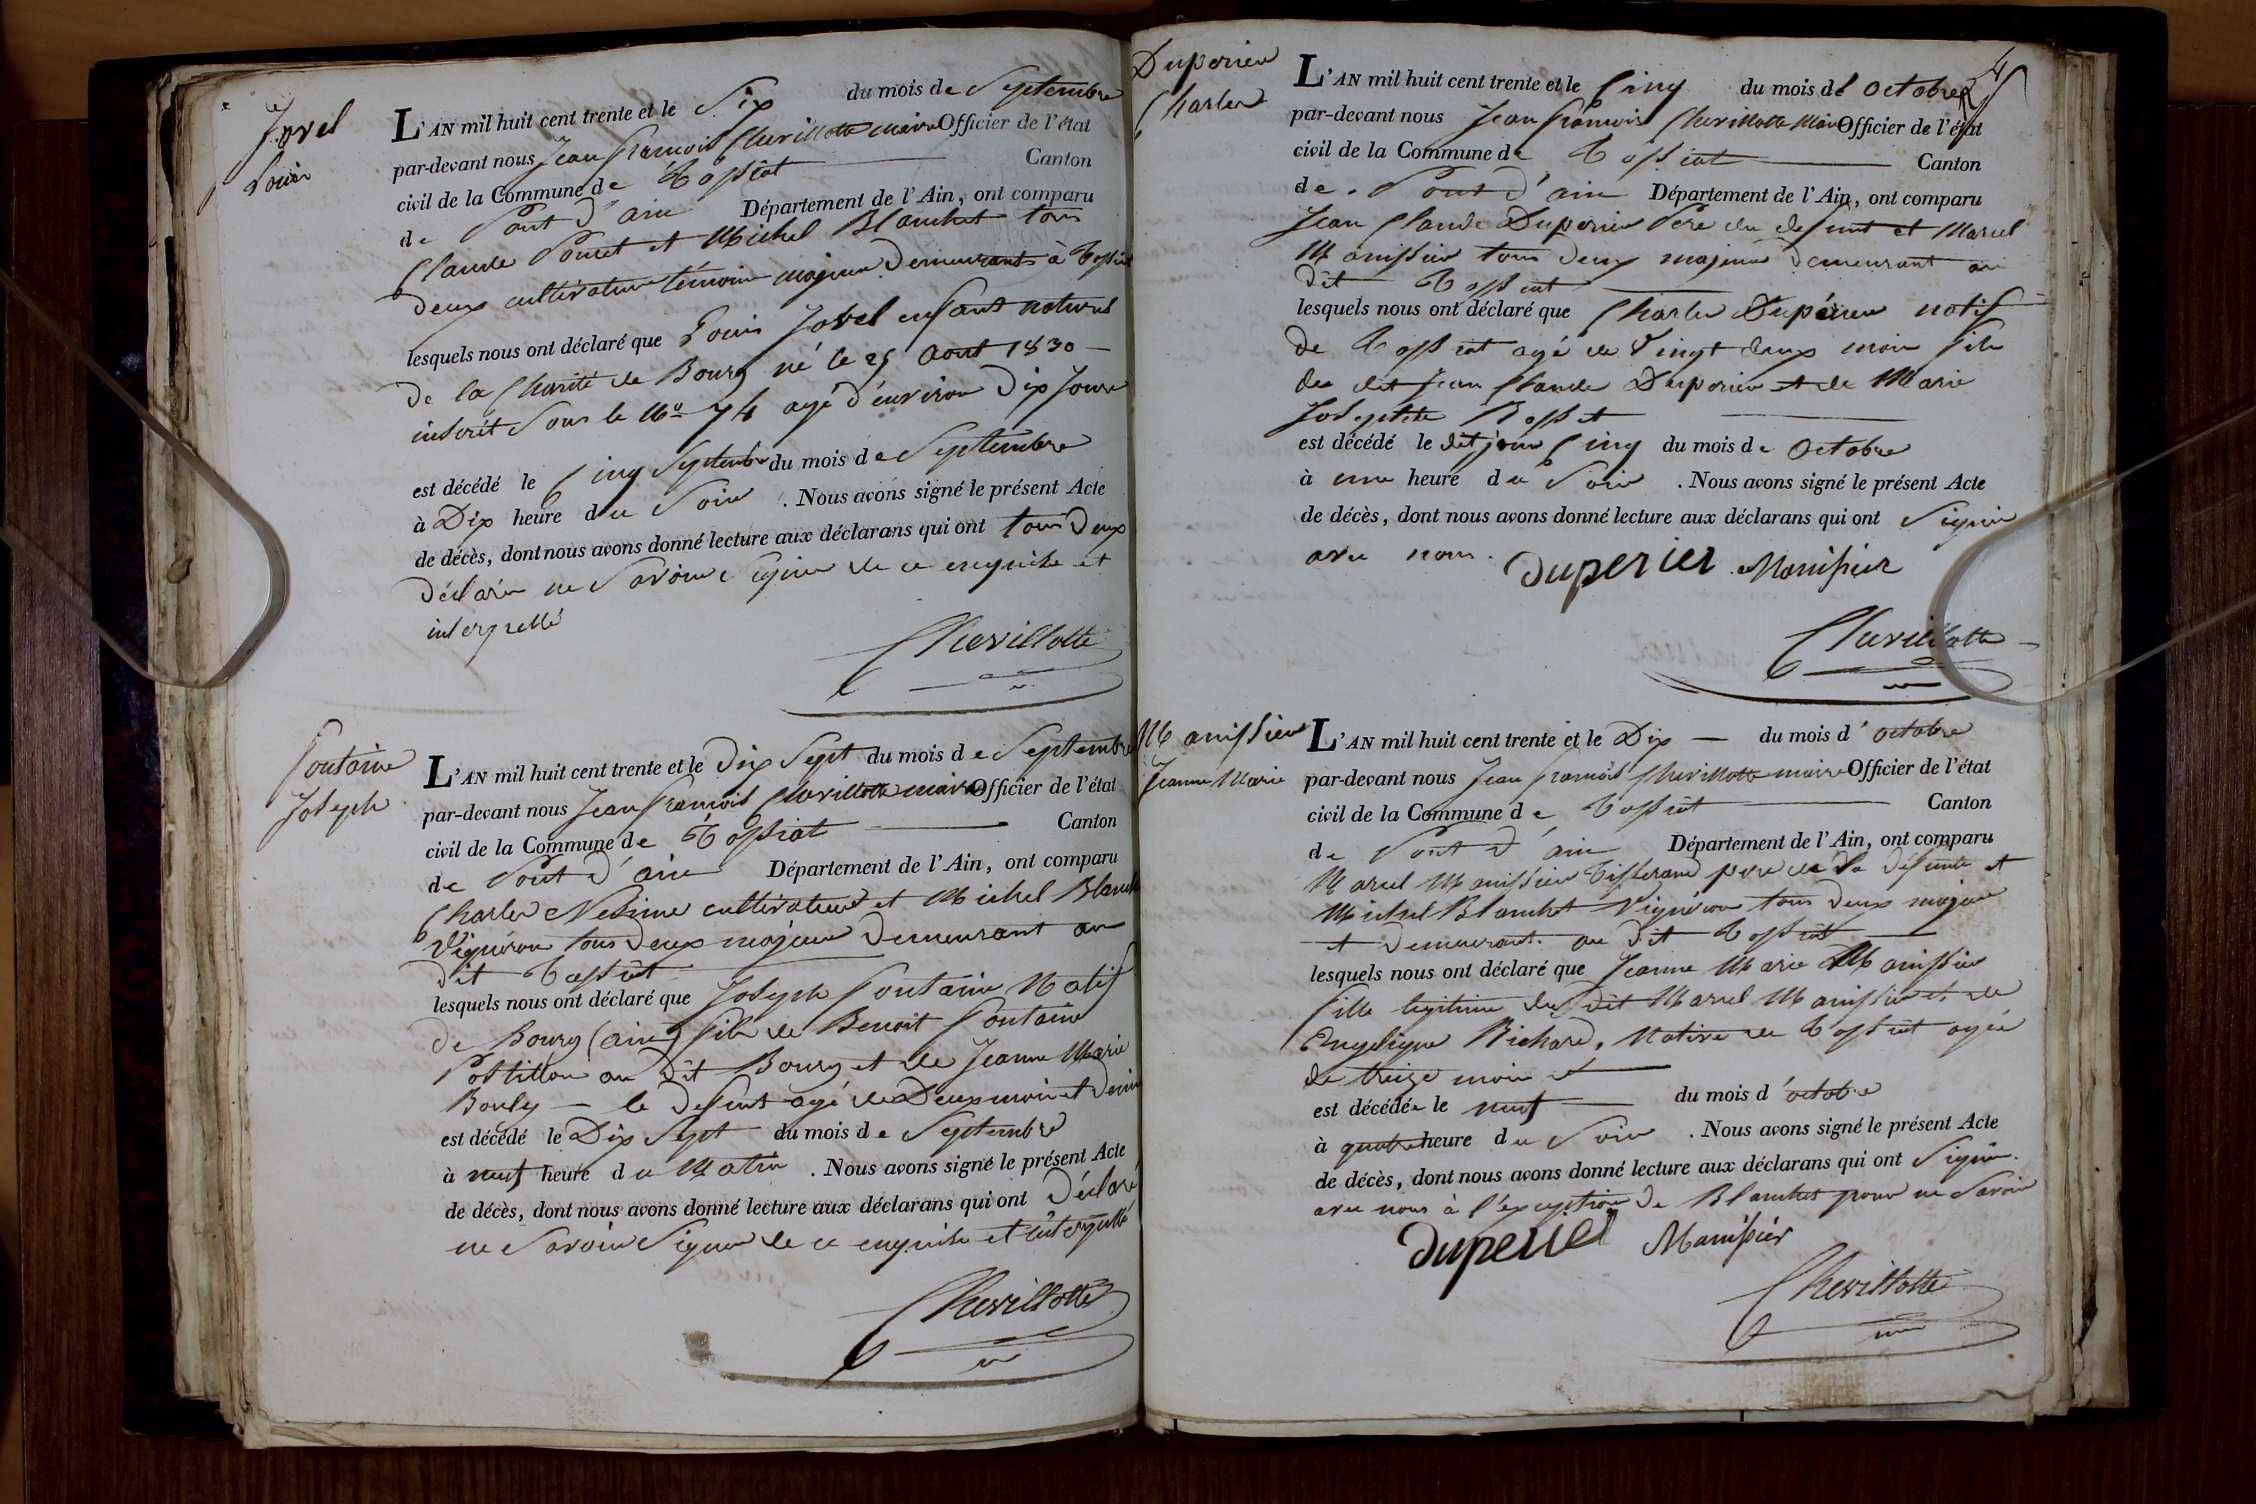 Jovel
Louis
L'AN mil huit cent trente et le Six du mois de Septembre
par-devant nous Jean francois Chevillotte maire Officier de l'état
civil de la Commune de Tossiat Canton
de Pont d'ain Département de l'Ain, ont comparu
Claude Poncet et Michel Blanchet tous
deux cultivateurs témoins majeurs demeurants à Tossiat
lesquels nous ont déclaré que Louis Jovel enfant naturel
de la Charité de Bourg né le 25 Aout 1830
inscrit sous le No 74 agé d'environ Dix Jours
est décédé le Cinq Septembre du mois de Septembre
à Dix heure du Soir. Nous avons signé le présent Acte
de décès, dont nous avons donné lecture aux déclarans qui ont tous deux
déclarés ne Savoir Signer de ce enquis et
interpellé
Chevillotte
Fontaine
Joseph
L'AN mil huit cent trente et le Dix Sept du mois de Septembre
par-devant nous Jean francois Chevillotte maire Officier de l'état
civil de la Commune de Tossiat Canton
de Pont d'ain Département de l'Ain, ont comparu
Charles cultivateur et Michel Blanchet
Vigneron tous deux majeurs demeurant au
dit Tossiat
lesquels nous ont déclaré que Joseph Fontaine Natif
de Bourg (ain) fils de Benoit Fontaine
Postillon au dit Bourg et de Jeanne Marie
Bouly le defunt agé de Deux mois et demi
est décédé le Dix Sept du mois de Septembre
à neuf heure du Matin. Nous avons signé le présent Acte
de décès, dont nous avons donné lecture aux déclarans qui ont déclaré
ne Savoir Signer de ce enquis et interpellé
Chevillotte
Duperier
Charles
L'AN mil huit cent trente et le Cinq du mois de Octobre
par-devant nous Jean francois Chevillotte Maire Officier de l'état
civil de la Commune de Tossiat Canton
de Pont d'ain Département de l'Ain, ont comparu
Jean Claude Duperier Père du defunt et Marcel
Manissier tous deux majeurs demeurant au
dit Tossiat
lesquels nous ont déclaré que Charles Duperier natif
de Tossiat agé de Vingt deux mois fils
du dit Jean Claude Duperier et de Marie
Josephte Rosset
est décédé le dit jour Cinq du mois de Octobre
à une heure du Soir. Nous avons signé le présent Acte
de décès, dont nous avons donné lecture aux déclarans qui ont Signés
avec nous.
duperier Manissier
Chevillotte
Manissier
Jeanne Marie
L'AN mil huit cent trente et le Dix du mois d'octobre
par-devant nous Jean francois Chevillotte maire Officier de l'état
civil de la Commune de Tossiat Canton
de Pont d'ain Département de l'Ain, ont comparu
Marcel Manissier Tisserand pere de la defunte et
Michel Blanchet Vigneron tous deux majeurs
et demeurant au dit Tossiat
lesquels nous ont déclaré que Jeanne Marie Manissier
fille legitime du dit Marcel Manissier et de
Engelique Richard, Native de Tossiat agée
de treize mois
est décédée le neuf du mois d'octobre
à quatre heure du Soir. Nous avons signé le présent Acte
de décès, dont nous avons donné lecture aux déclarans qui ont Signés
avec nous à l'exception de Blanchet pour ne Savoir
duperier Manissier
Chevillotte